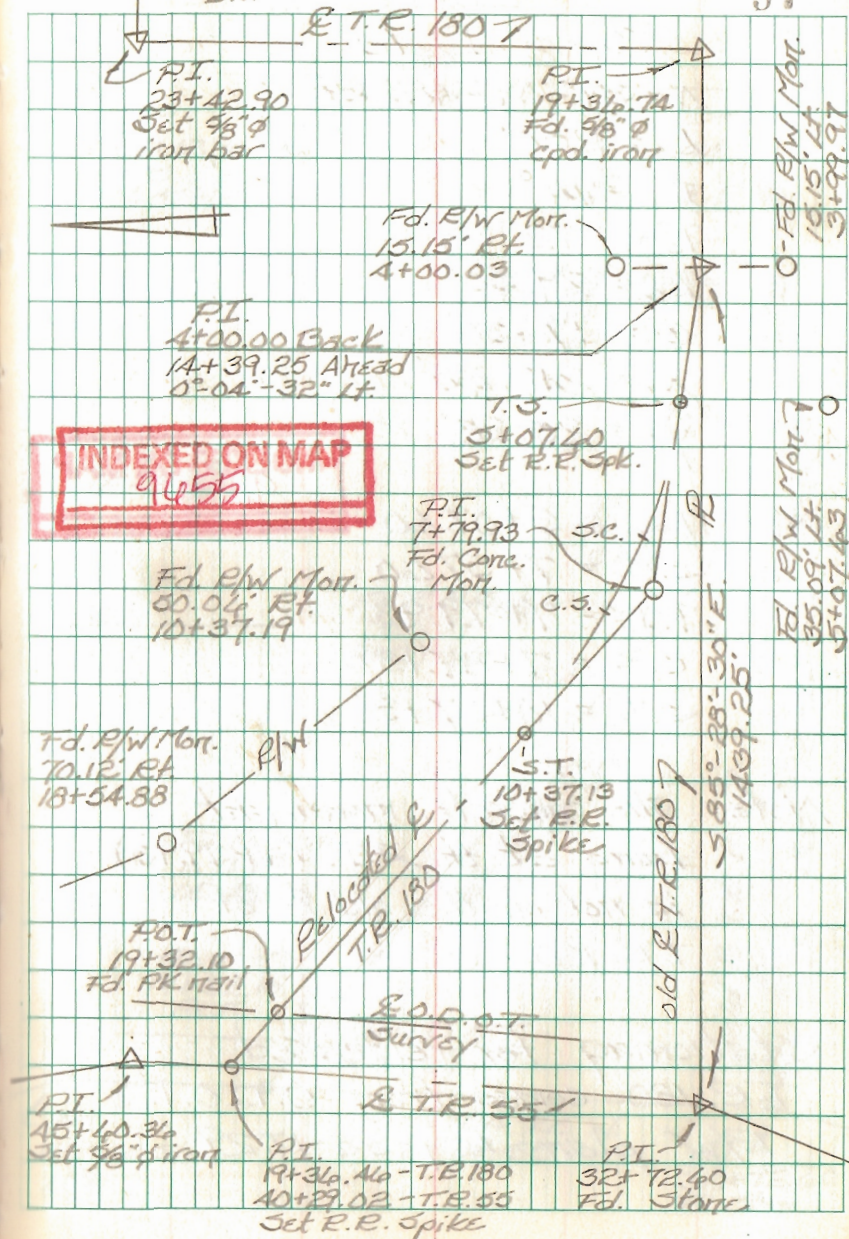 ℄ T.R. 180
P.I.
23+42.90
Set 5/8" φ
iron bar
P.I.
19+36.74
Fd. 5/8" φ
cpd. iron
Fd. R/W Mon.
15.15' Lt.
3+99.97
Fd. R/W Mon.
15.15' Rt.
4+00.03
P.I.
4+00.00 Back
14+39.25 Ahead
0°-04'-32" Lt.
T.S.
5+07.40
Set R.R. Spk.
INDEXED ON MAP
9655
P.I.
7+79.93
Fd. Conc.
Mon.
S.C.
C.S.
Fd. R/W Mon.
35.09' Lt.
5+07.43
Fd. R/W Mon.
50.06' Rt.
10+37.19
S 85°-28'-30" E.
1439.25'
Fd. R/W Mon.
70.12' Rt.
18+54.88
R/W
S.T.
10+37.13
Set R.R.
Spike
Relocated ℄
T.R. 180
old ℄ T.R. 180
P.O.T.
19+32.10
Fd. PK nail
℄ O.D.O.T.
Survey
℄ T.R. 55
P.I.
45+60.36
Set 5/8" φ iron
P.I.
19+36.46 - T.R. 180
40+29.02 - T.R. 55
Set R.R. Spike
P.I.
32+72.60
Fd. Stone